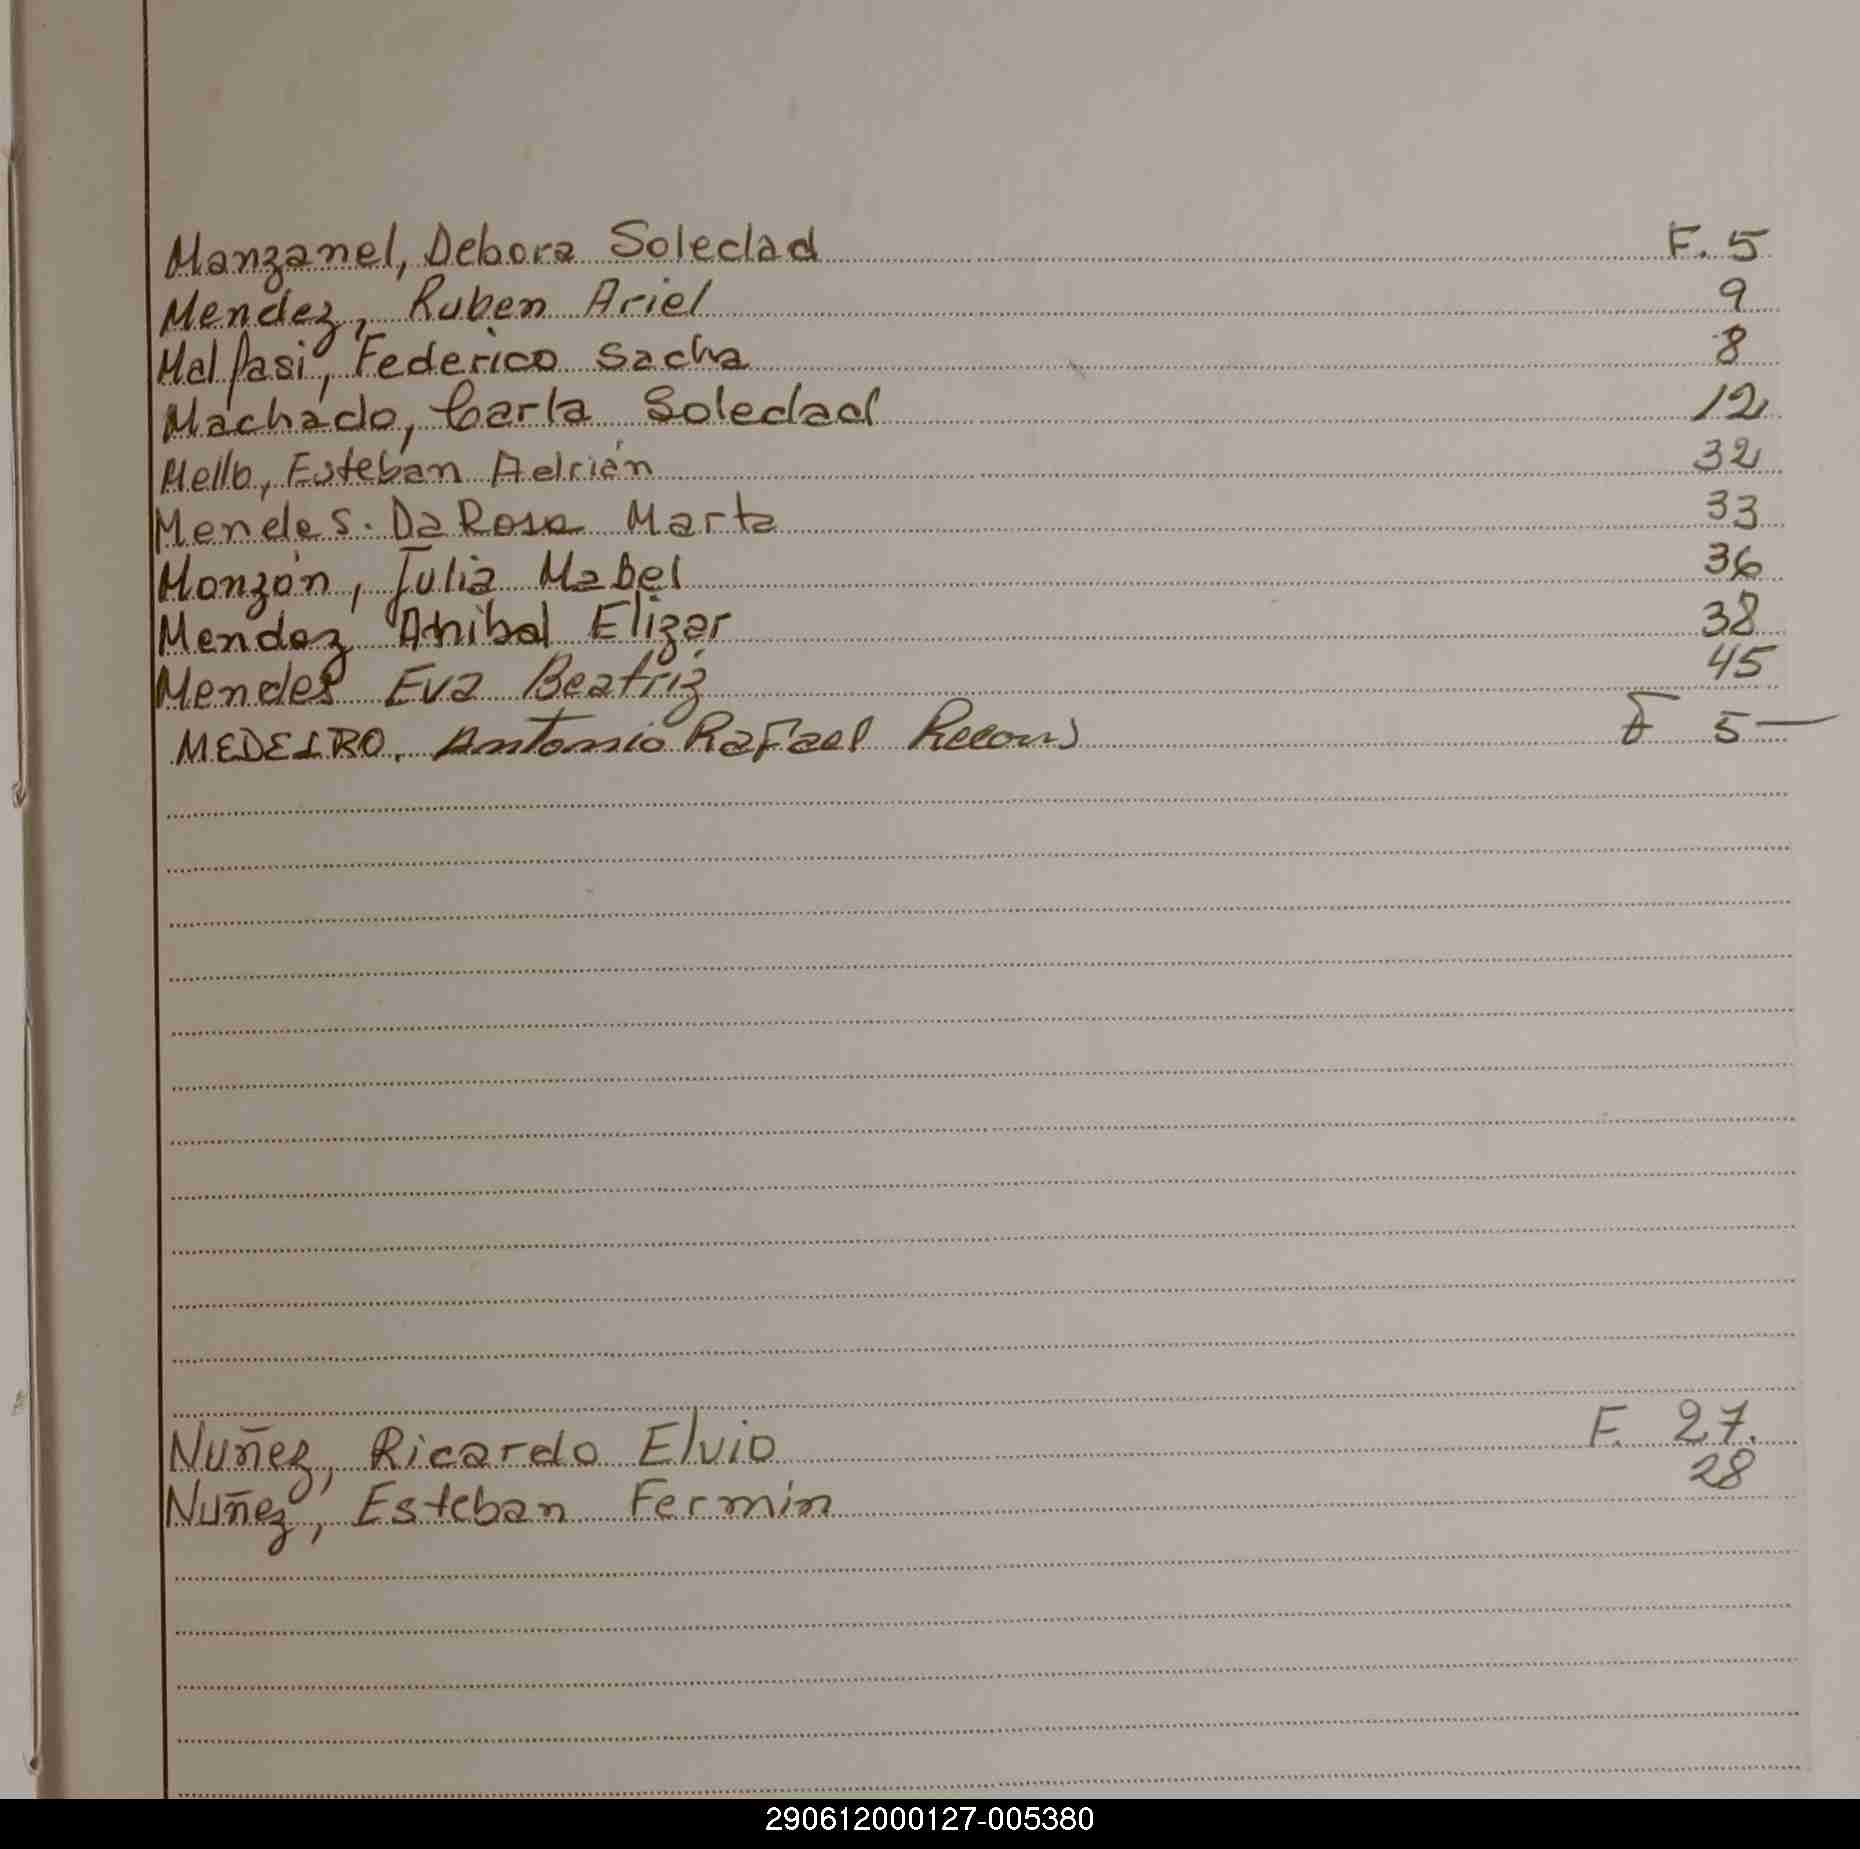 Manzanel, Debora Soledad F. 5
Mendez, Ruben Ariel 9
Malfasi, Federico Sacha 8
Machado, Carla Soledad 12
Mello, Esteban Adrián 32
Mendes. Da Rosa Marta 33
Monzón, Julia Mabel 36
Mendez Anibal Elizar 38
Mendes Eva Beatriz 45
MEDEIRO. Antonio Rafael F 5
Nuñez, Ricardo Elvio F. 27.
Nuñez, Esteban Fermín 28
290612000127-005380